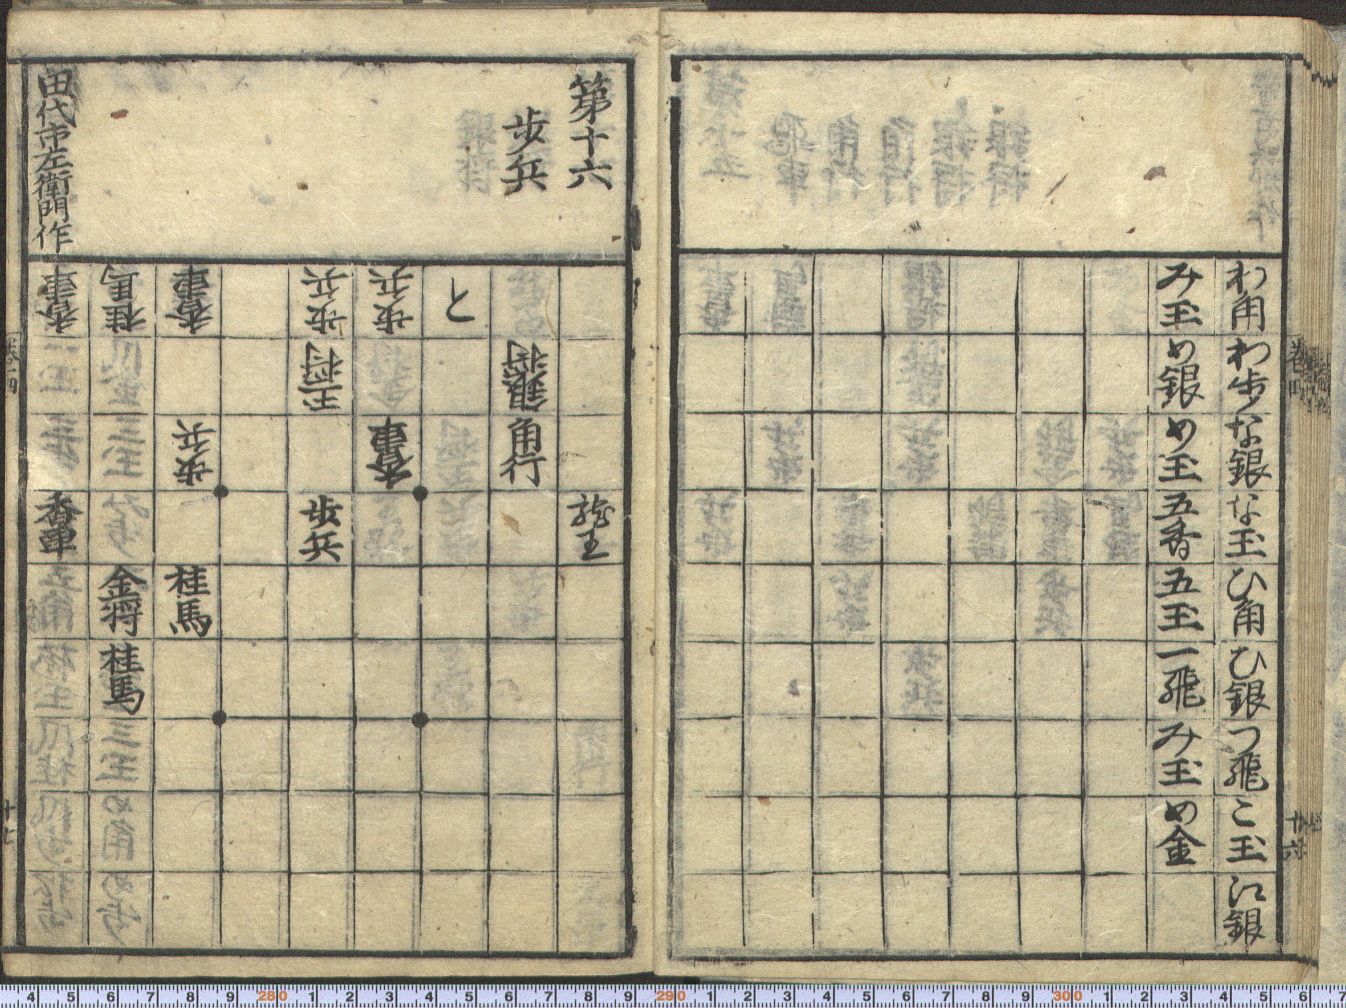 わ角 わ歩 な銀 な玉 ひ角 ひ銀 つ飛 こ玉 江銀
み玉 め銀 め玉 五香 五玉 一飛 み玉 め金
第十六
歩兵
と
銀将 角行 龍王
歩兵 香車
歩兵 王将 歩兵
香車 歩兵 桂馬
桂馬 金将 桂馬
香車 香車
田代市左衛門作